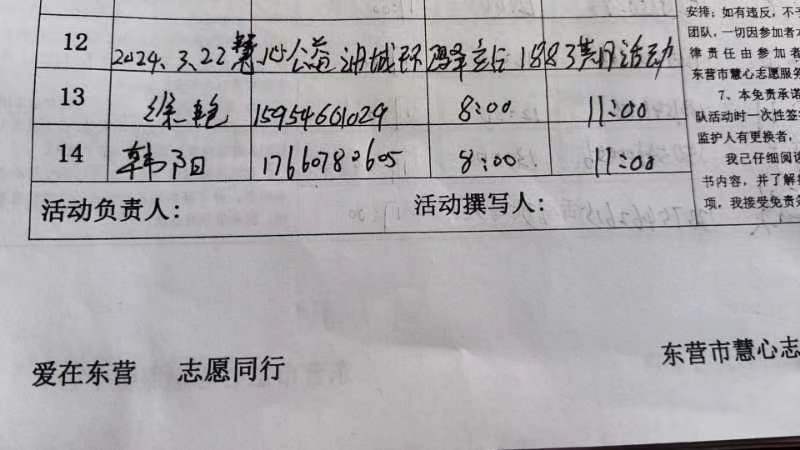 安排;如有违反,不
团队,一切因参加者
12 2024.3.22慧心公益油城环 1883 活动
律责任由参加者
东营市慧心志愿服务
13 徐艳 15954661029 8:00 11:00
7、本免责承诺
队活动时一次性签
监护人有更换者,
14 韩阳 17660780605 8:00 11:00
我已仔细阅读
书内容,并了解
活动负责人: 活动撰写人:
项,我接受免责条
爱在东营 志愿同行
东营市慧心志